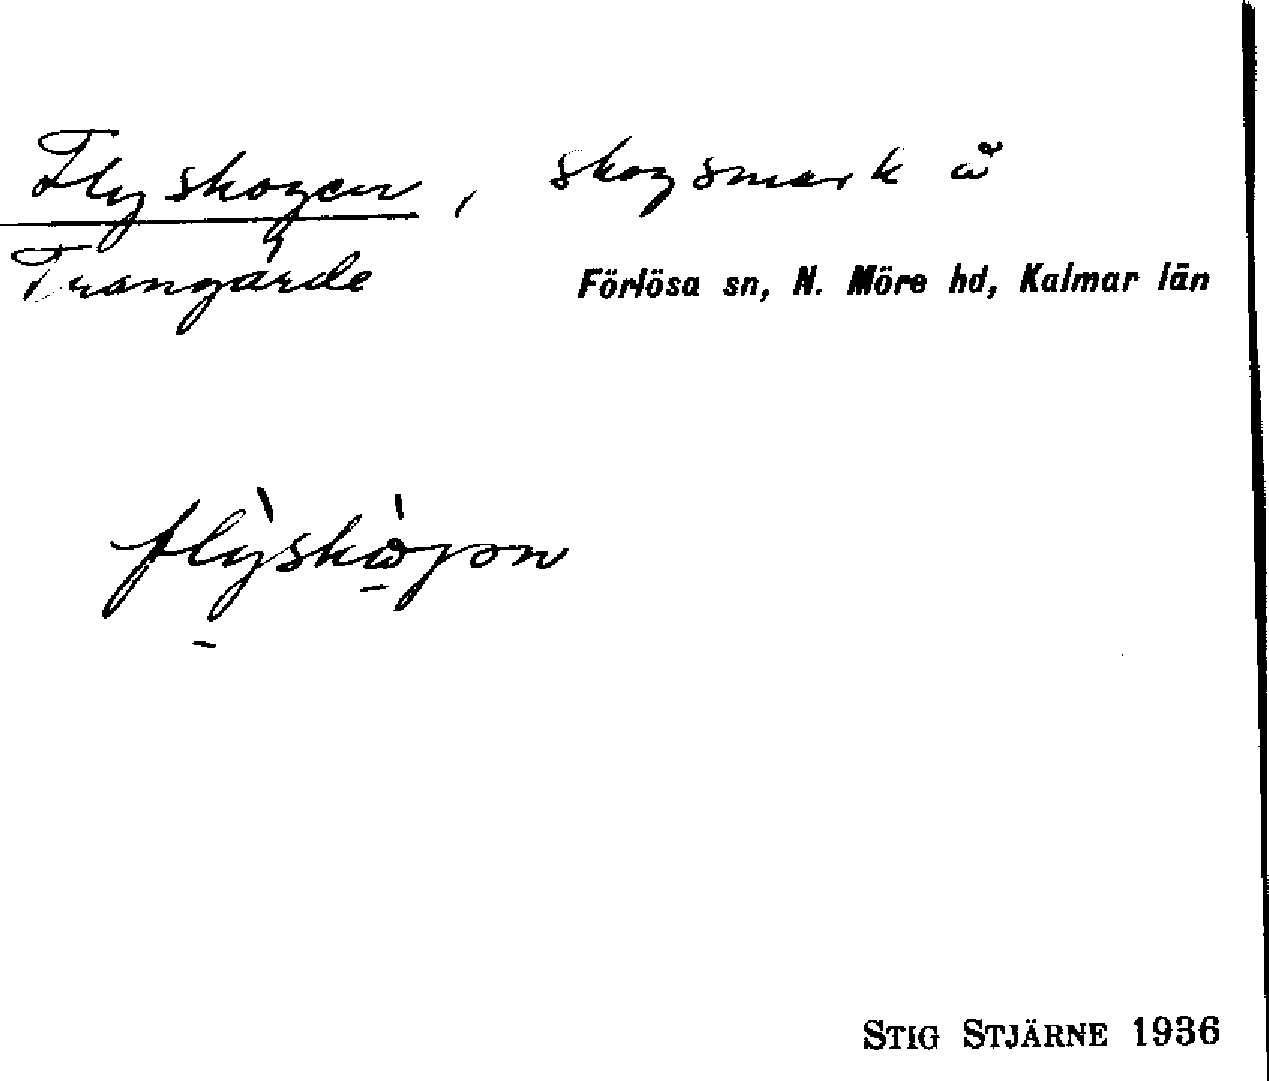 Flyskogen, skogsmark å
Trangärde Förlösa sn, N. Möre hd, Kalmar län
STIG STJÄRNE 1936